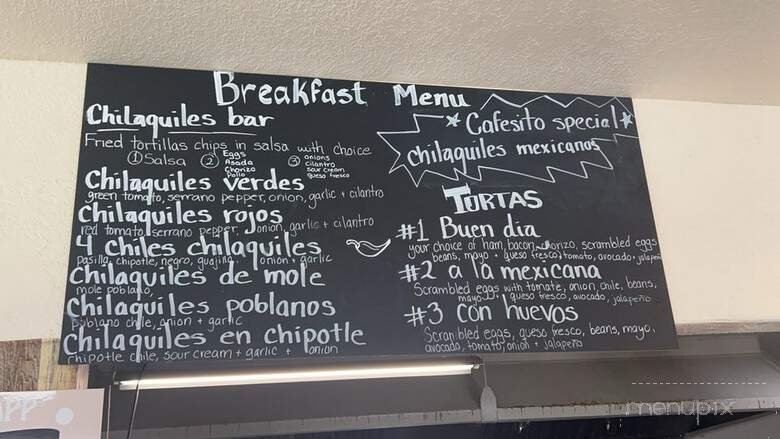 Breakfast Menu
Chilaquiles bar
Fried tortillas chips in salsa with choice
① Salsa ② Eggs
Asada
Chorizo
Pollo
③ onions
cilantro
sour cream
queso fresco
Chilaquiles verdes
green tomato, serrano pepper, onion, garlic + cilantro
Chilaquiles rojos
red tomato, serrano pepper, onion, garlic + cilantro
4 Chiles chilaquiles
pasilla, chipotle, negro, guajillo, onion + garlic
Chilaquiles de mole
mole poblano,
Chilaquiles poblanos
poblano chile, onion + garlic
Chilaquiles en chipotle
chipotle chile, sour cream + garlic + onion
Cafesito special
chilaquiles mexicanos
TORTAS
#1 Buen dia
your choice of ham, bacon, chorizo, scrambled eggs
beans, mayo + queso fresco, tomato, avocado, jalapeño
#2 a la mexicana
Scrambled eggs with tomate, onion, chile, beans,
mayo, queso fresco, avocado, jalapeño
#3 con huevos
Scrambled eggs, queso fresco, beans, mayo,
avocado, tomato, onion + jalapeño
menupix